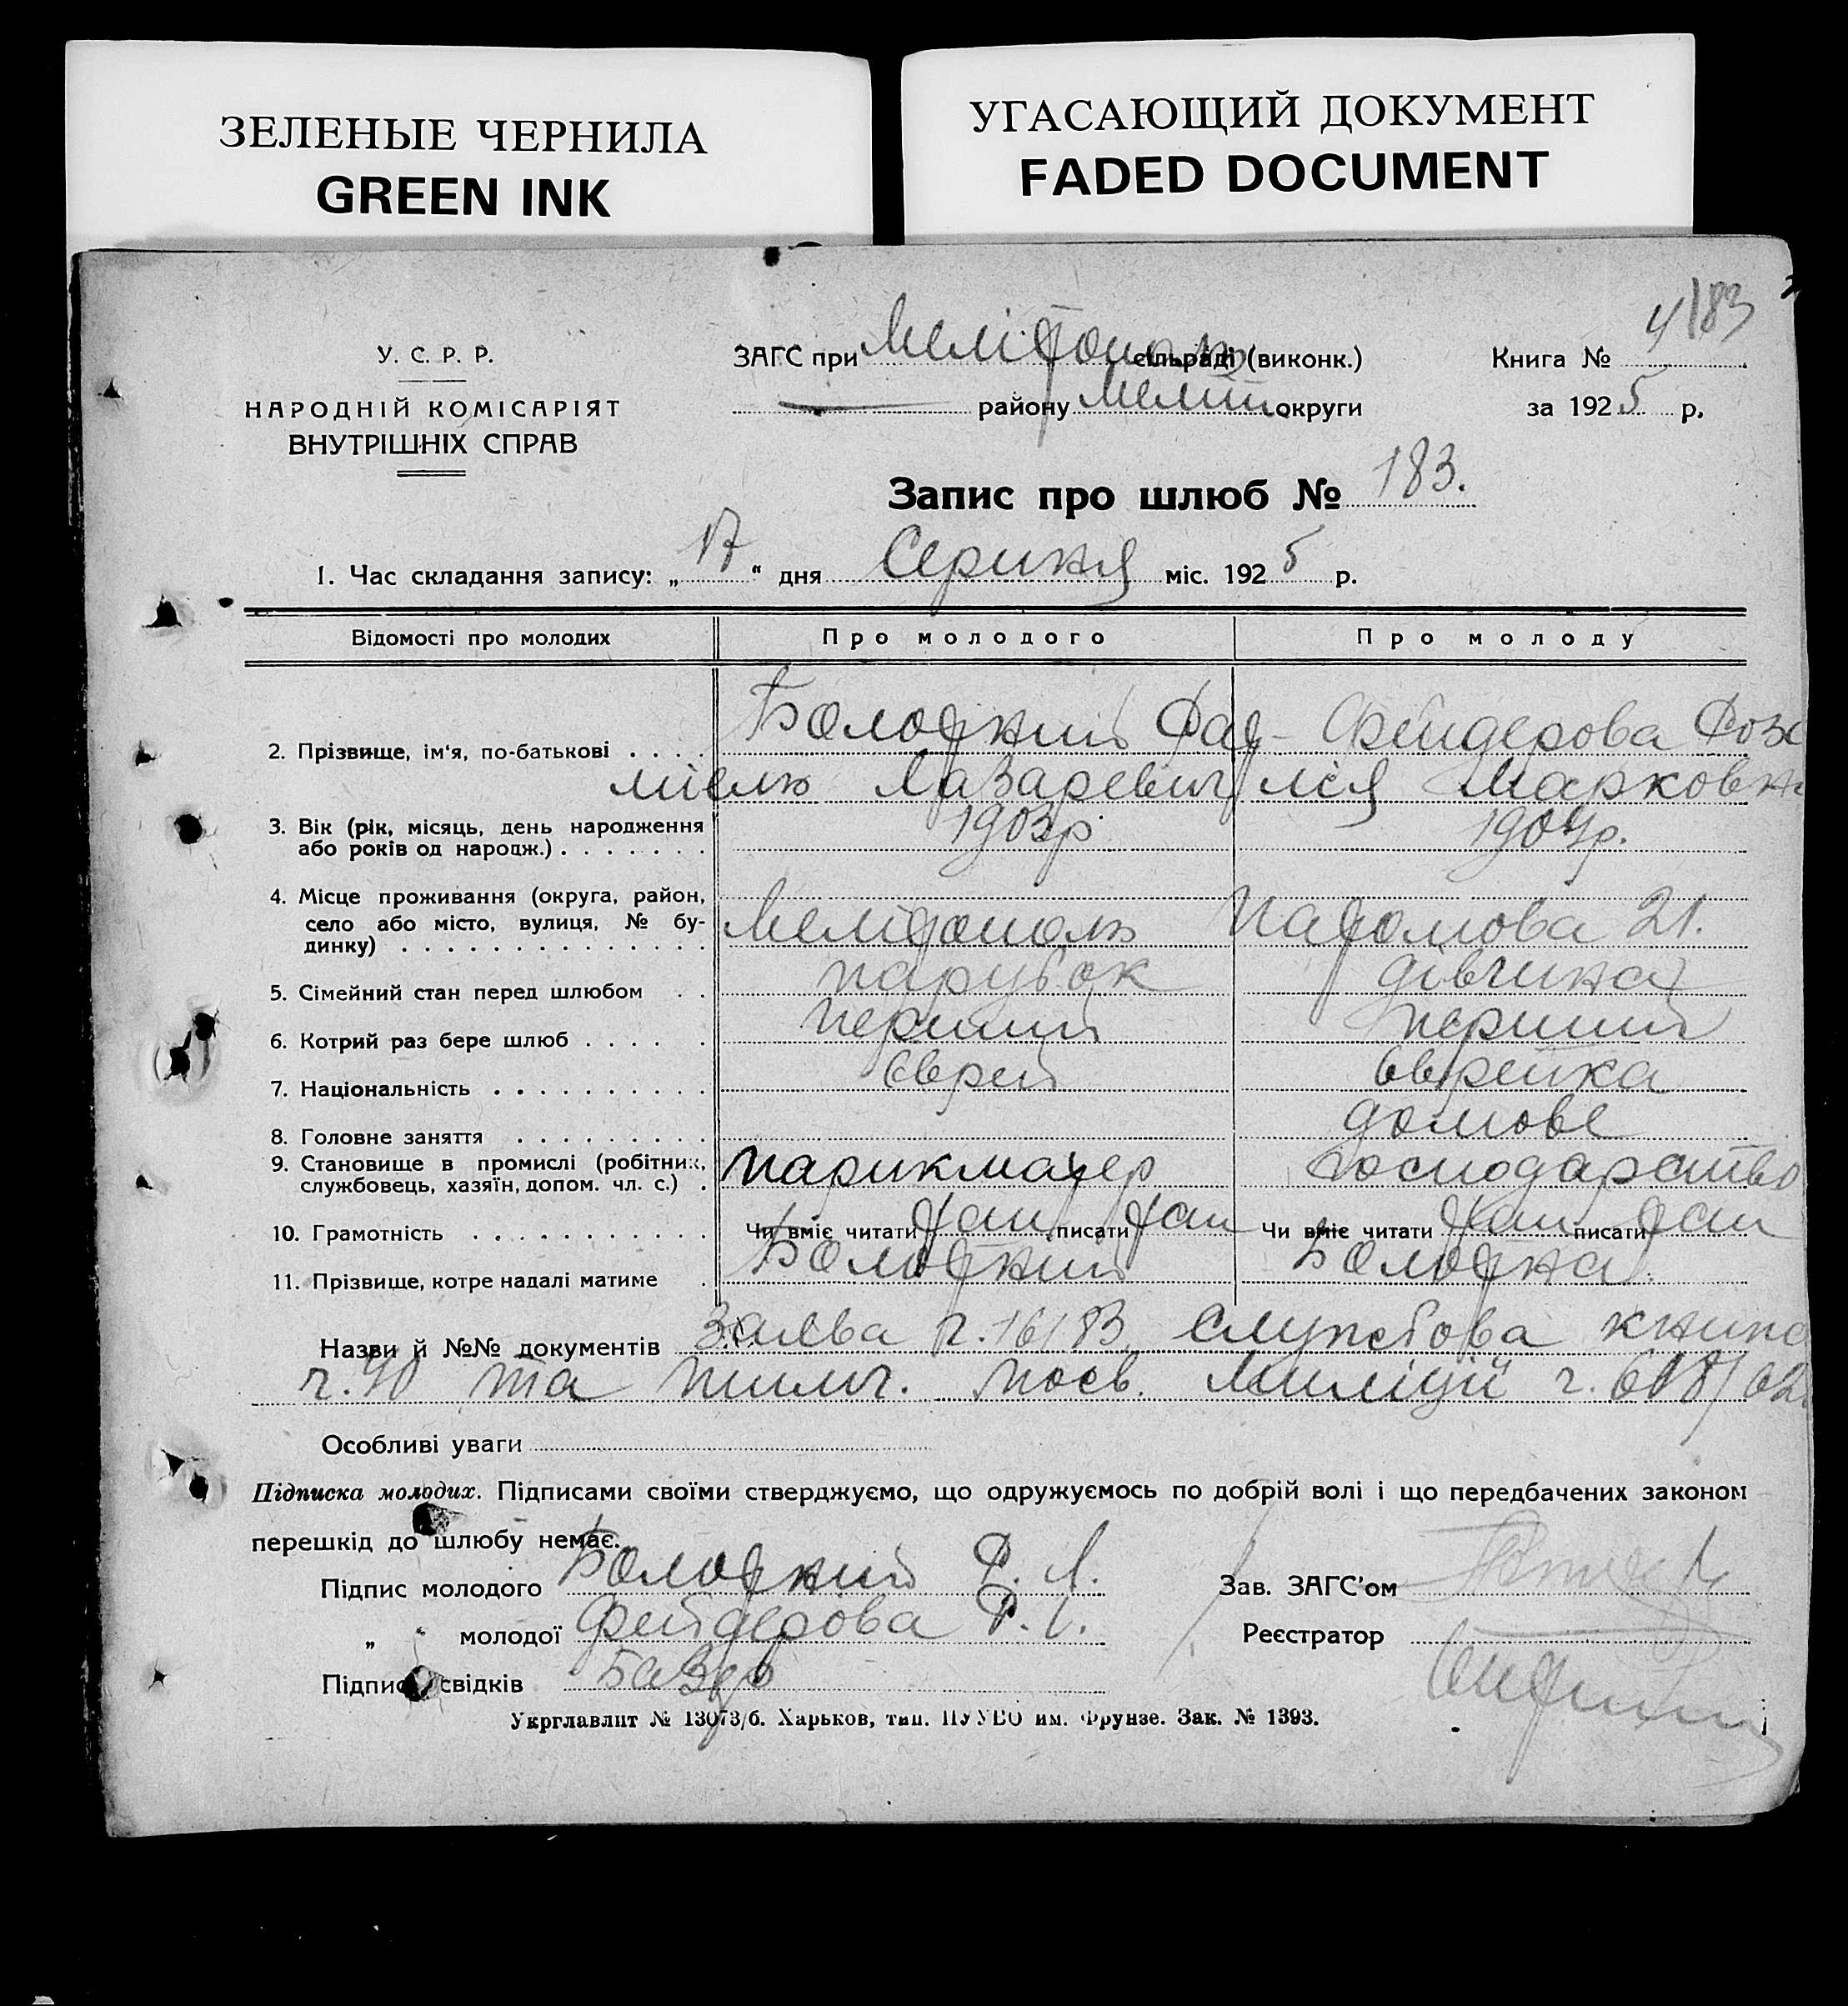 ЗЕЛЕНЫЕ ЧЕРНИЛА
GREEN INK
УГАСАЮЩИЙ ДОКУМЕНТ
FADED DOCUMENT
4/83
У. С. Р. Р.
НАРОДНІЙ КОМІСАРІЯТ
ВНУТРІШНІХ СПРАВ
ЗАГС при Мелітополь сільраді (виконк.)
району Меліт округи
Книга №
за 1925 р.
Запис про шлюб № 183.
1. Час складання запису: „17“ дня Серпня міс. 1925 р.
Відомості про молодих Про молодого Про молоду
2. Прізвище, ім'я, по-батькові . . . . Болотний Фад- Фейдерова
міель Лазаревич лія Марковна
3. Вік (рік, місяць, день народження 1903р. 1904р.
або років од народж.) . . . . . . .
4. Місце проживання (округа, район,
село або місто, вулиця, № бу-
динку) . . . . . . . . . . . . . . Мелітополь 21.
5. Сімейний стан перед шлюбом . . парубок дівчина
6. Котрий раз бере шлюб . . . . . перший перший
7. Національність . . . . . . . . . . Єврей Єврейка
8. Головне заняття . . . . . . . . . домове
9. Становище в промислі (робітник, Парикмахер господарство
службовець, хазяїн, допом. чл. с.) .
10. Грамотність . . . . . . . . . . . Чи вміє читати так писати так Чи вміє читати так писати так
11. Прізвище, котре надалі матиме . Болотний Болотна
Назви й №№ документів Заєва ч. 16183, службова книж
ч. 40 та тимч. посв. Міліції ч. 618/62
Особливі уваги
Підписка молодих. Підписами своїми стверджуємо, що одружуємось по добрій волі і що передбачених законом
перешкід до шлюбу немає.
Підпис молодого Болотний Ф. Л.
„ молодої Фейдерова
Підпис свідків
Зав. ЗАГС'ом
Реєстратор
Укрглавлит № 13073/б. Харьков, тип. ПУУВО им. Фрунзе. Зак. № 1393.